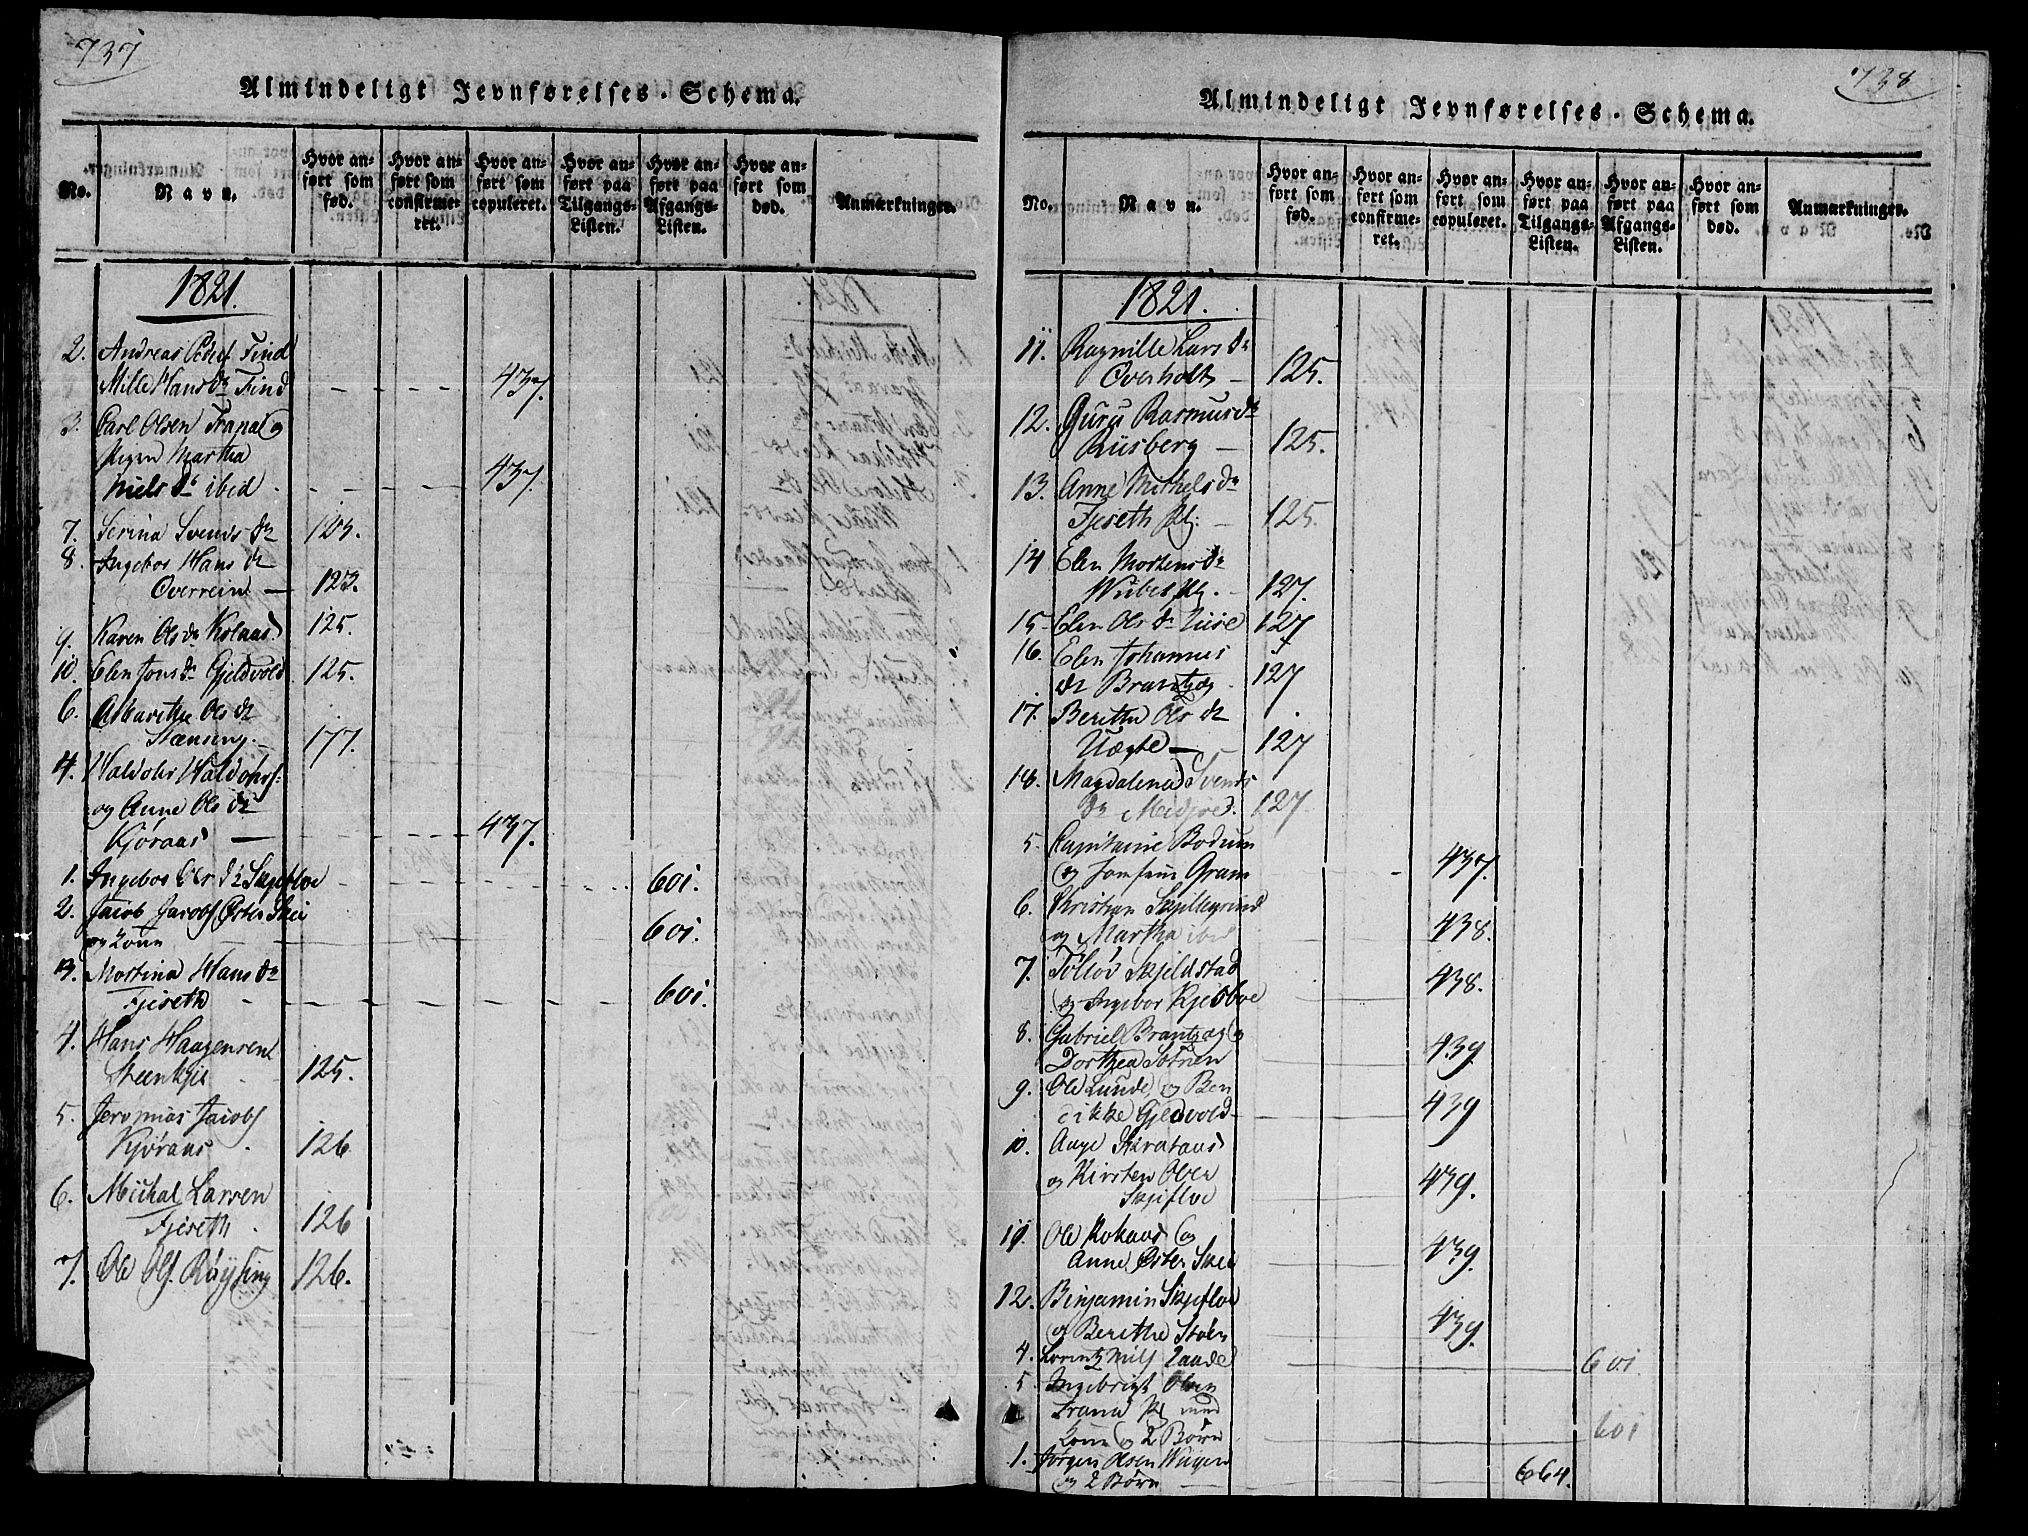 737
Almindeligt Jevnførelses-Schema.
No.
Navn.
Hvor anført som fød.
Hvor anført som confirmeret.
Hvor anført som copuleret.
Hvor anført paa Tilgangs-Listen.
Hvor anført paa Afgangs-Listen.
Hvor anført som død.
Anmærkninger.
1821.
2. Andreas Peders. Find
Mille Hans Dr Find 437.
3. Carl Olsen Trana og
Pigen Martha
Niels Dr ibid 437.
7. Serina Svends Dr 123.
8. Ingebor Hans Dr
Overrein 123.
9. Karen Ols Dr Kolaas 125.
10. Elen Jons Dr Gjeldvold 125.
6. Ols Dr
177.
4. Haldohr Haldohrs.
og Anne Ols Dr
Kjøraas 437.
1. Ingebor Ols Dr Skjefloe 601.
2. Jacob Jacobs. Øster Skei
og Kone 601.
3. Mortina Hans Dr
Fjeseth 601.
4. Hans Haagensen
Steenkjer 125.
5. Jeremias Jacobs.
Kjøraas 126
6. Michal Larsen
Fjeseth 126
7. Ole Ols. Røysing 126.
738
Almindeligt Jevnførelses-Schema.
No.
Navn.
Hvor anført som fød.
Hvor anført som confirmeret.
Hvor anført som copuleret.
Hvor anført paa Tilgangs-Listen.
Hvor anført paa Afgangs-Listen.
Hvor anført som død.
Anmærkninger.
1821.
11. Ragnille Lars Dr
Overholt 125.
12. Guru Rasmus Dr
Riisberg 125.
13. Anne Mikkels Dr
Fjeseth pl. 125.
14 Elen Mortens Dr
Wibes pl. 127.
15 Elen Ols Dr 127
16. Elen Johannes
Dr Brantzæg 127
17. Berithe Ols Dr
127
18. Magdalena Svends
Dr 127
5. Capitaine Bodum
og Jomfrue Gram 437.
6. Christian Skillegrind
og Martha ibid 438.
7. Tollov Skjeldstad
og Ingebor Kjesboe 438.
8. Gabriel Brantzæg og
Dorthea 439
9. Ole Lunde og Ben
dikke Gjeldvold 439
10. Aage
og Kirsten Olver
Skjefloe 439.
11. Ole Kokaas og
Anne Øster Skei 439
12. Binjamin Skjefloe
og Berithe 439
4. Lorentz Nils. 601
5. Ingebrigt Olsen
Trana pl med
Kone og 2 Børn 601
1. Jørgen Olsen
og 2 Børn 664.